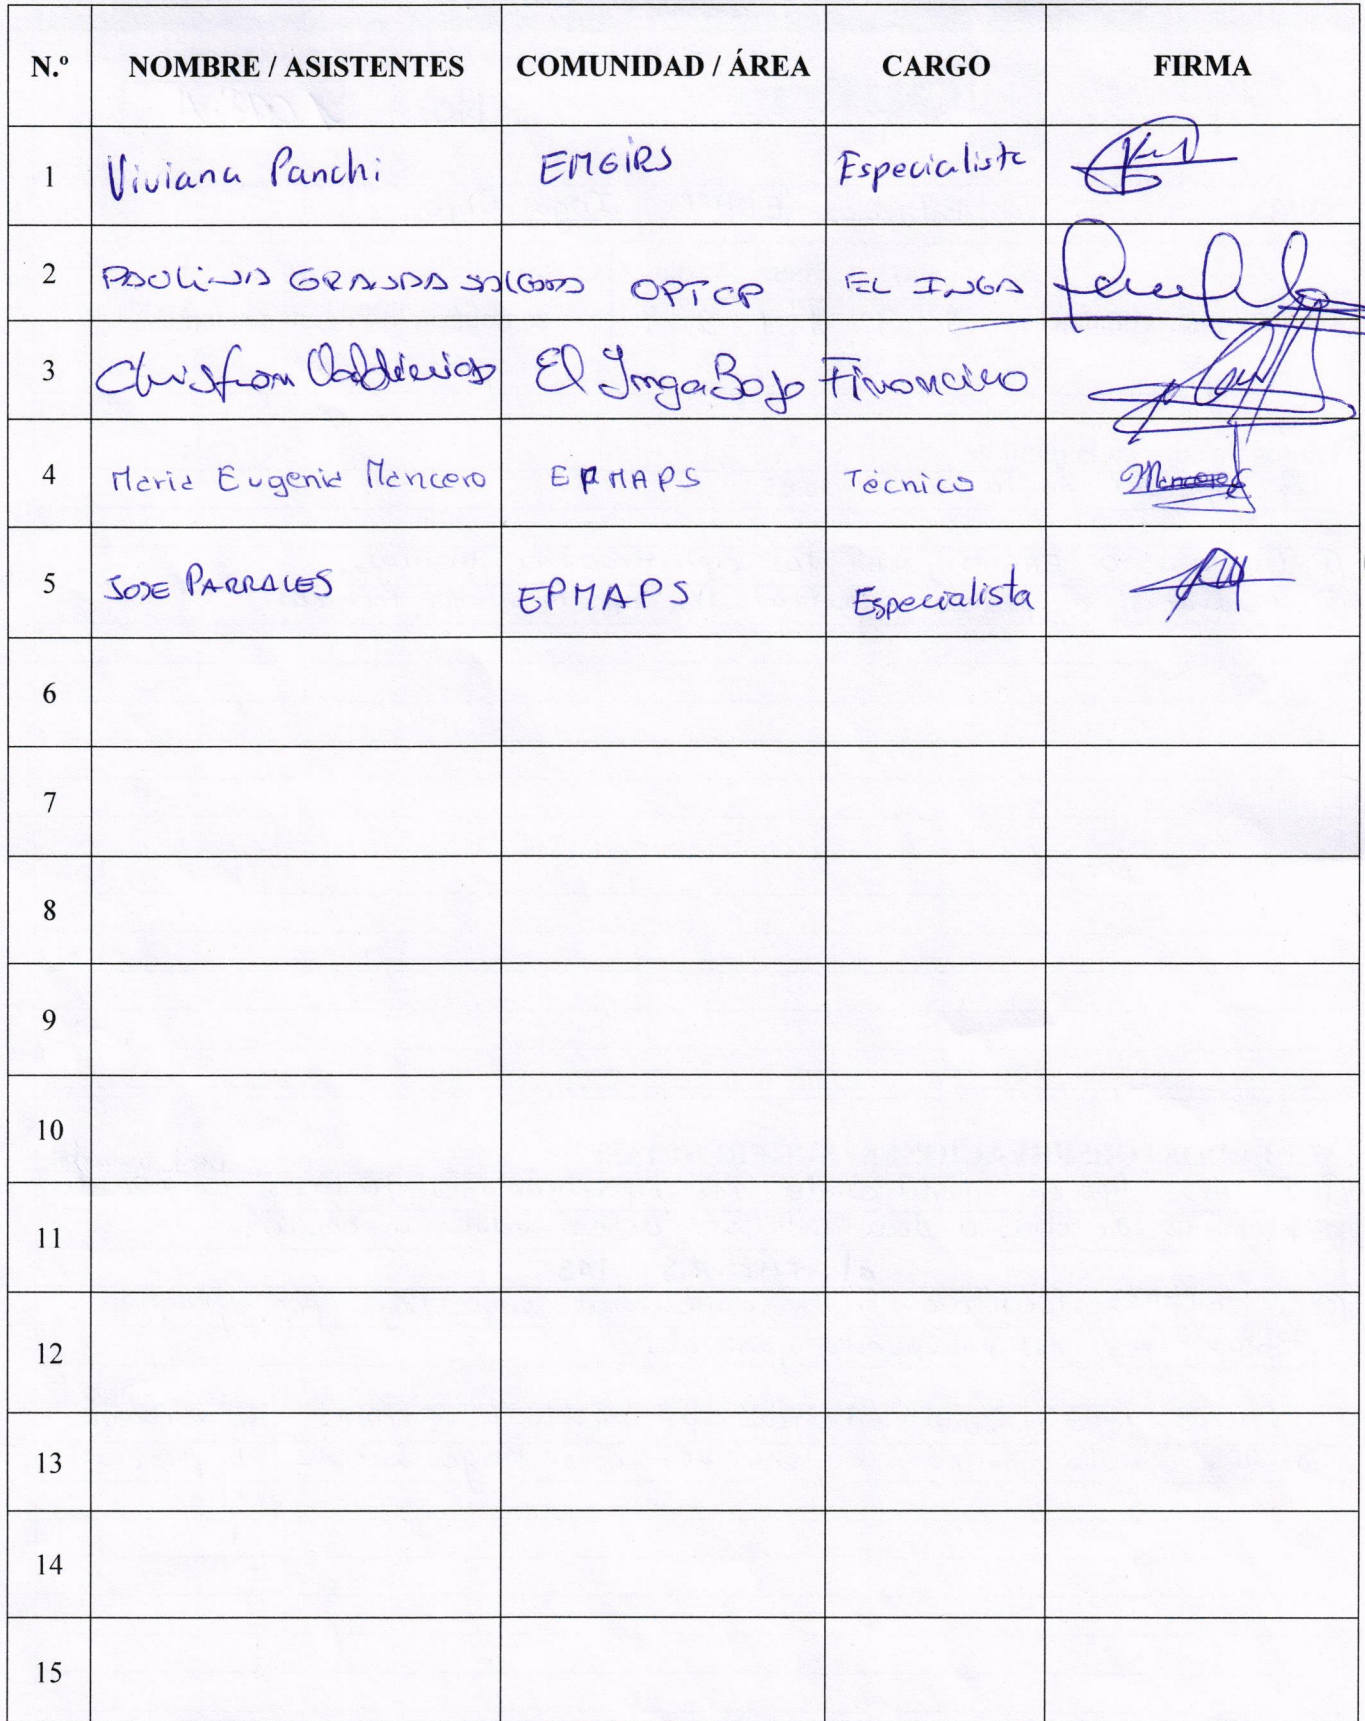 N.º NOMBRE / ASISTENTES COMUNIDAD / ÁREA CARGO FIRMA
1 Viviana Panchi EMGIRS Especialista
2 PAULINA GRANDA OPTCP EL INGA
3 Christian El Inga Bajo Financiero
4 Maria Eugenia Mancero EPMAPS Técnico Mancero
5 JOSE PARRALES EPMAPS Especialista
6
7
8
9
10
11
12
13
14
15